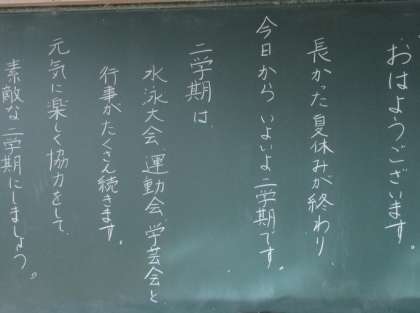 おはようございます。
長かった夏休みが終わり、
今日から いよいよ二学期です。
二学期は、
水泳大会、運動会、学芸会と
行事がたくさん続きます。
元気に楽しく協力をして、
素敵な二学期にしましょう。